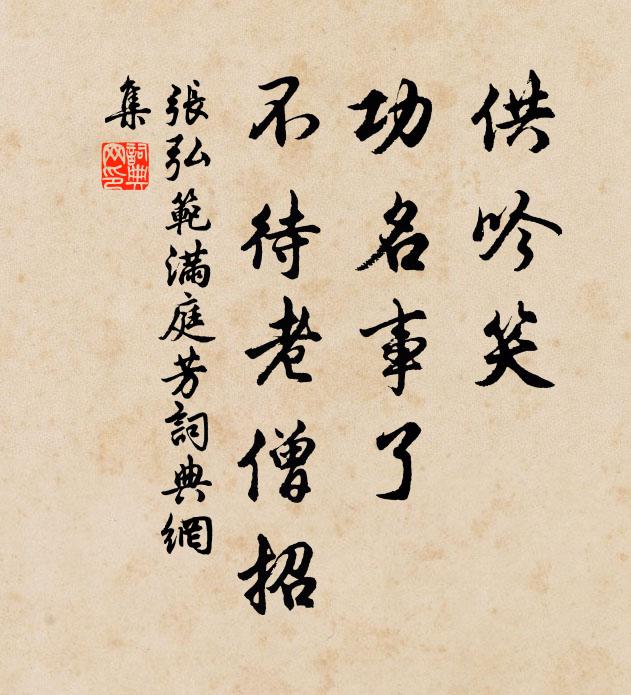 供吟笑
功名事了
不待老僧招
張弘範滿庭芳詞典網
集
詞典
网印